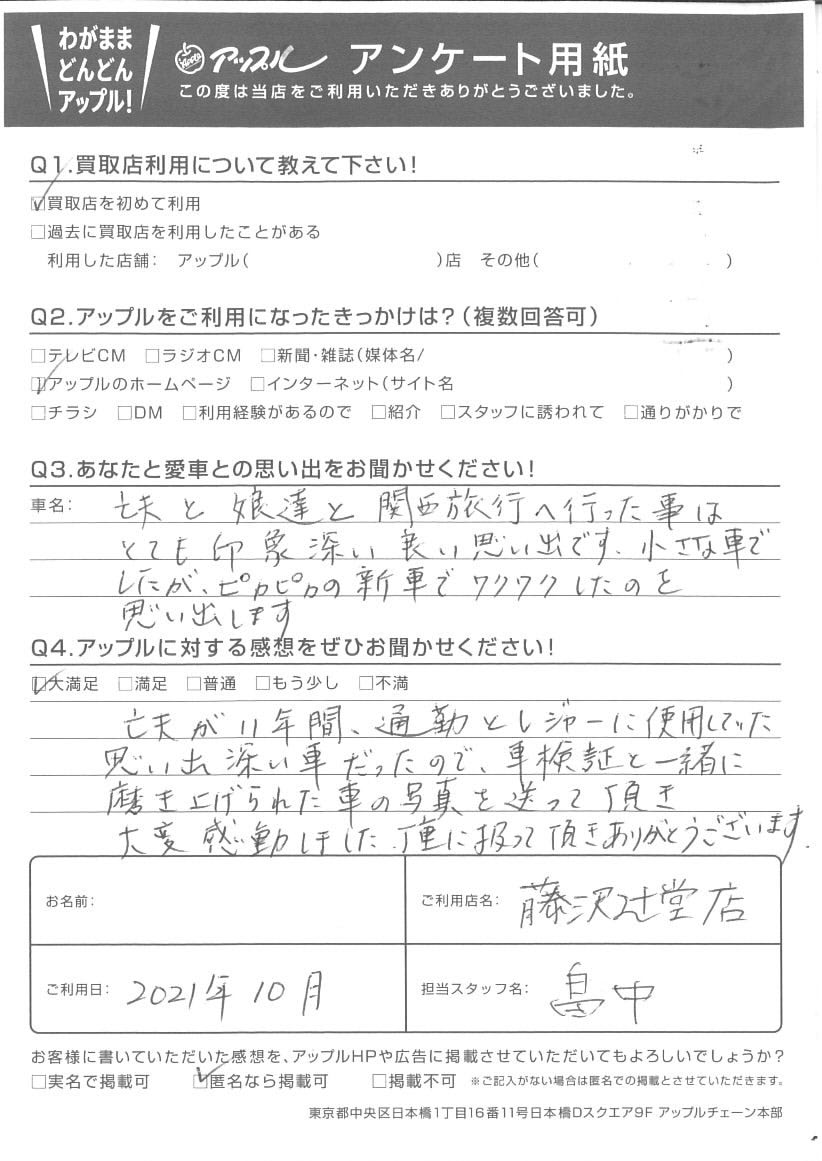 わがまま
どんどん
アップル!
Apple アップル アンケート用紙
この度は当店をご利用いただきありがとうございました。
Q1.買取店利用について教えて下さい!
☑買取店を初めて利用
□過去に買取店を利用したことがある
利用した店舗: アップル( )店 その他( )
Q2.アップルをご利用になったきっかけは?(複数回答可)
□テレビCM □ラジオCM □新聞・雑誌(媒体名/ )
☑アップルのホームページ □インターネット(サイト名 )
□チラシ □DM □利用経験があるので □紹介 □スタッフに誘われて □通りがかりで
Q3.あなたと愛車との思い出をお聞かせください!
車名: 亡夫と娘達と関西旅行へ行った事は
とても印象深い良い思い出です、小さな車で
したが、ピカピカの新車でワクワクしたのを
思い出します
Q4.アップルに対する感想をぜひお聞かせください!
☑大満足 □満足 □普通 □もう少し □不満
亡夫が11年間、通勤とレジャーに使用していた
思い出深い車だったので、車検証と一緒に
磨き上げられた車の写真を送って頂き
大変感動しました.丁重に扱って頂きありがとうございます.
お名前:
ご利用店名: 藤沢辻堂店
ご利用日: 2021年10月
担当スタッフ名: 畠中
お客様に書いていただいた感想を、アップルHPや広告に掲載させていただいてもよろしいでしょうか?
□実名で掲載可 ☑匿名なら掲載可 □掲載不可 ※ご記入がない場合は匿名での掲載とさせていただきます。
東京都中央区日本橋1丁目16番11号日本橋Dスクエア9F アップルチェーン本部